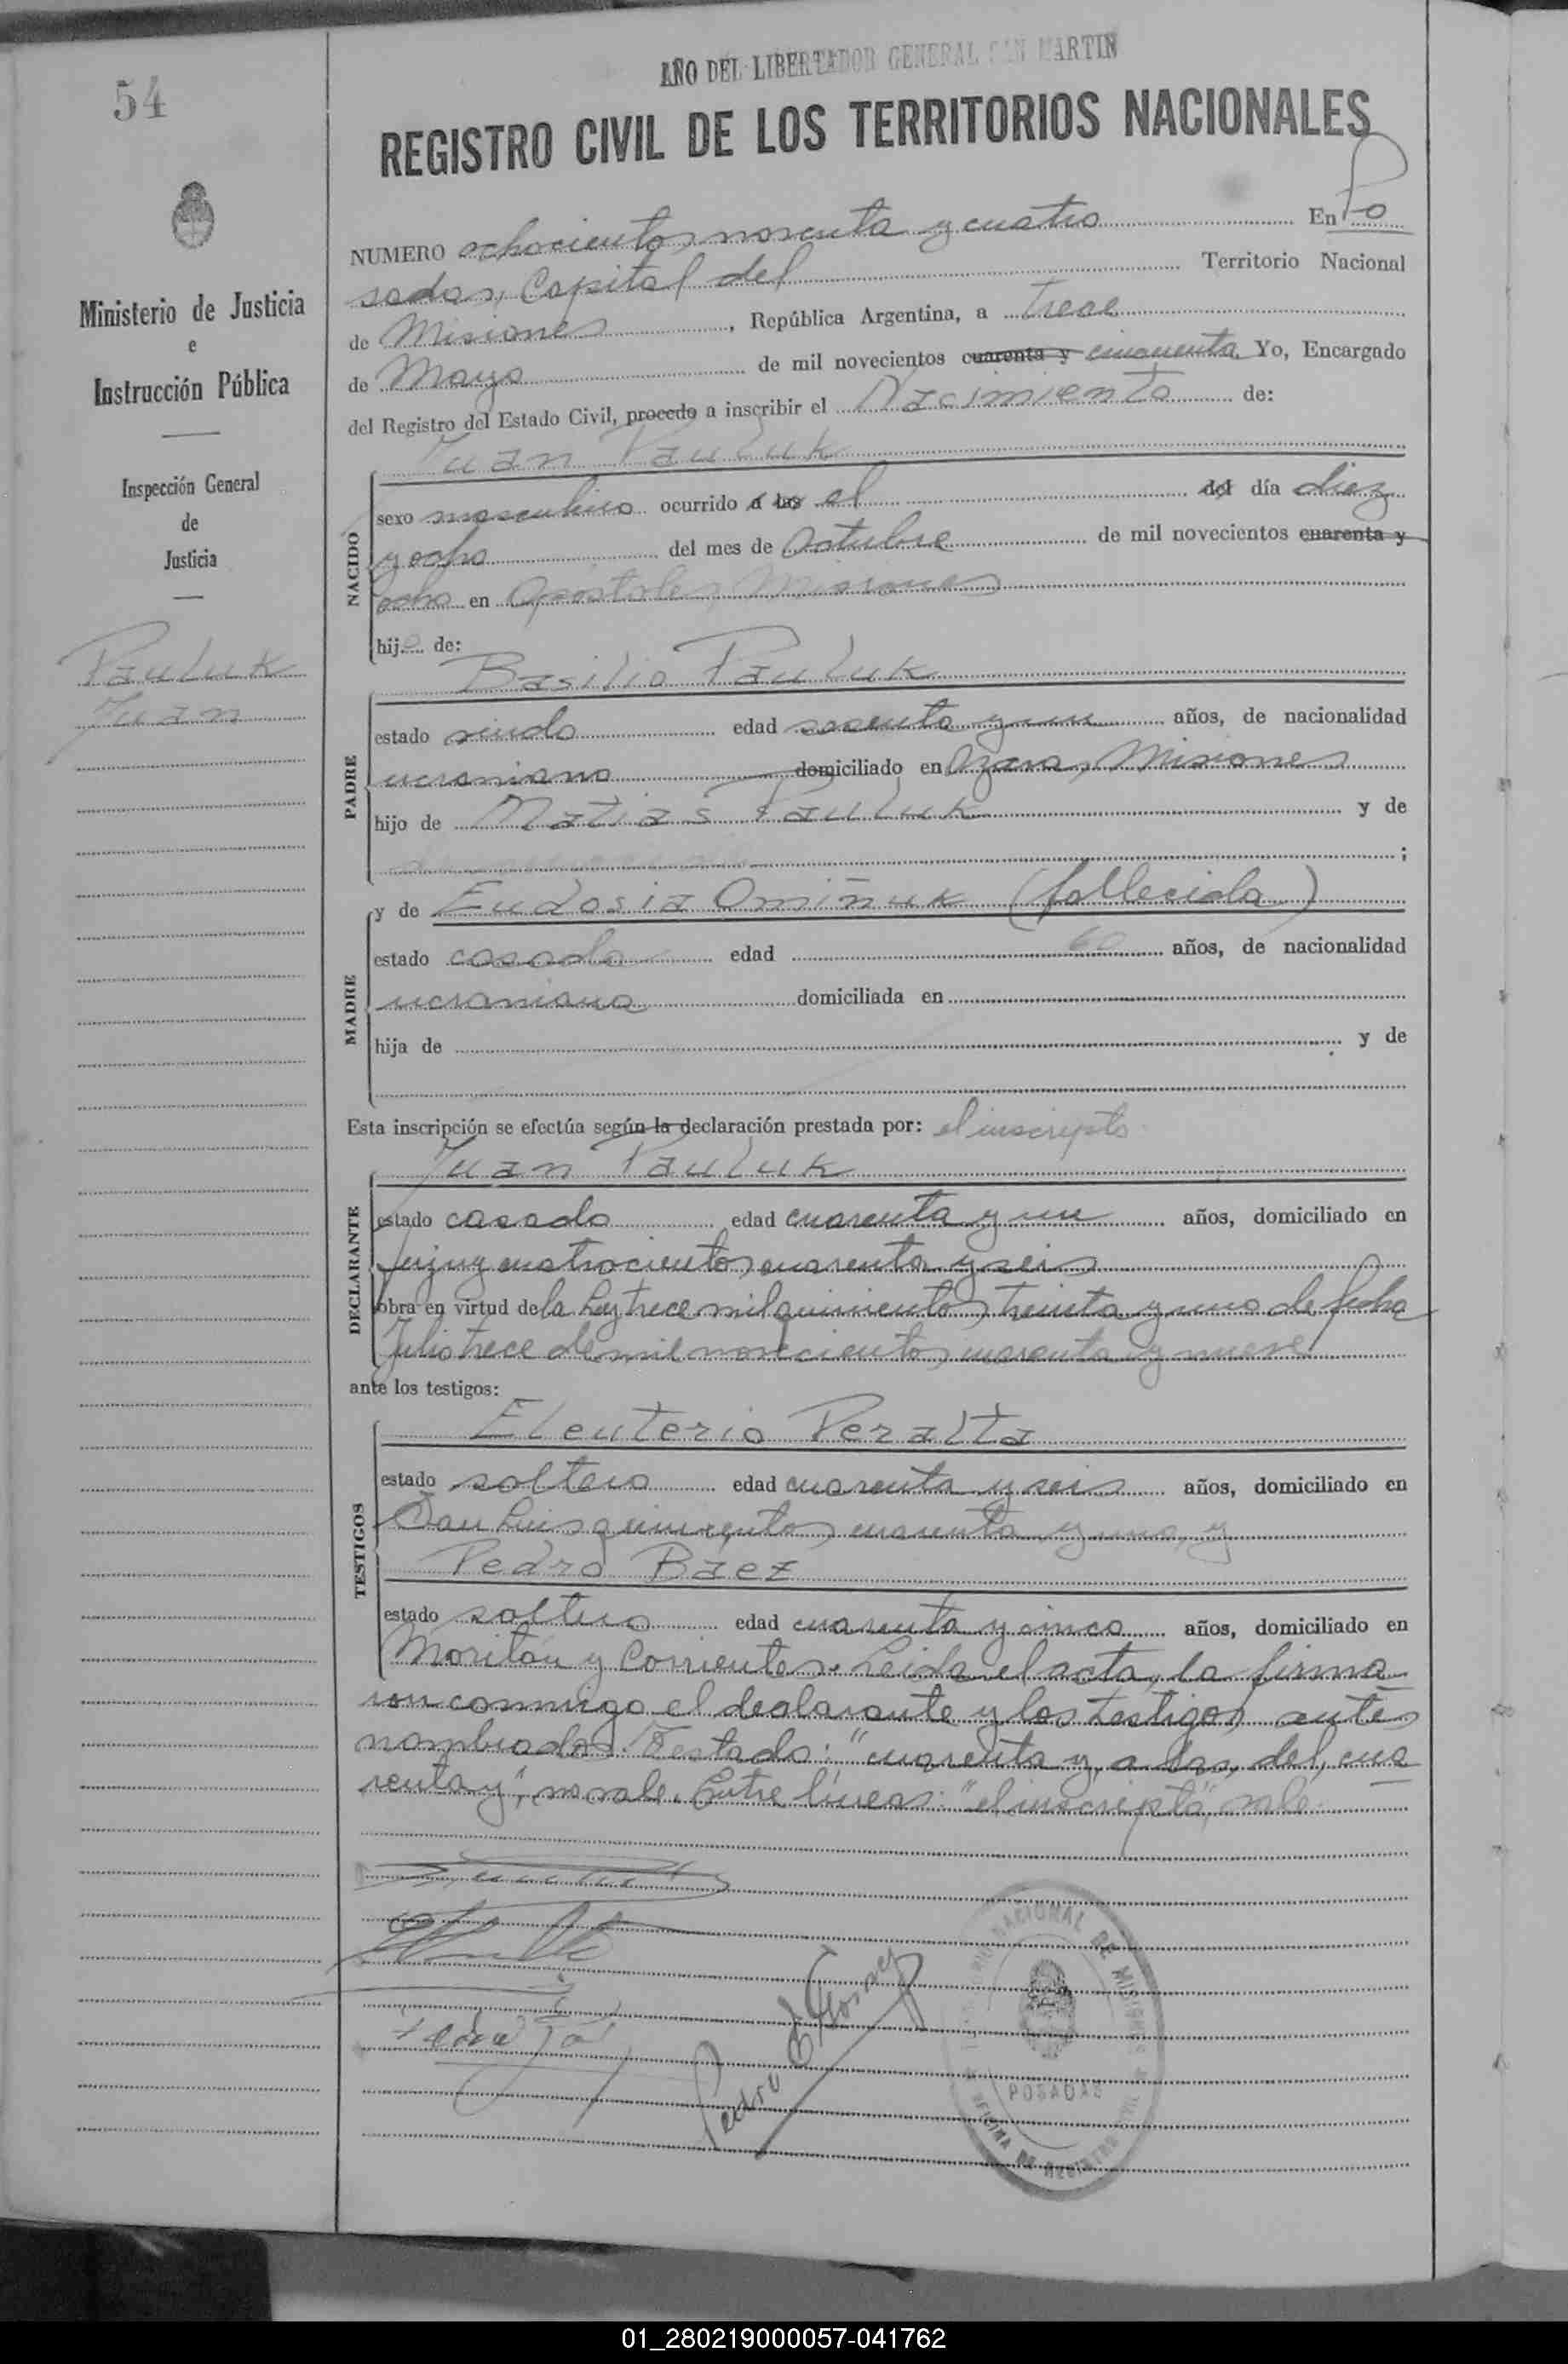 54
AÑO DEL LIBERTADOR GENERAL SAN MARTIN
REGISTRO CIVIL DE LOS TERRITORIOS NACIONALES
Ministerio de Justicia
e
Instrucción Pública
Inspección General
de
Justicia
Pauluk
Juan
NUMERO ochocientos noventa y cuatro En Po
sadas, Capital del Territorio Nacional
de Misiones, República Argentina, a trece
de Mayo de mil novecientos cuarenta y cincuenta Yo, Encargado
del Registro del Estado Civil, procedo a inscribir el Nacimiento de:
Juan Pauluk
NACIDO
sexo masculino ocurrido a las el del día diez
y ocho del mes de Octubre de mil novecientos cuarenta y
ocho en Apóstoles, Misiones
hijo de:
Basilio Pauluk
PADRE
estado viudo edad sesenta y un años, de nacionalidad
ucraniano domiciliado en Azara, Misiones
hijo de Matias Pauluk y de
;
y de Eudosia Omiñuk (fallecida)
MADRE
estado casada edad 60 años, de nacionalidad
ucraniana domiciliada en
hija de y de
Esta inscripción se efectúa según la declaración prestada por: el inscripto
Juan Pauluk
DECLARANTE
estado casado edad cuarenta y un años, domiciliado en
Jujuy cuatrocientos cuarenta y seis
obra en virtud de la Ley trece mil quinientos treinta y uno de fecha
Julio trece de mil novecientos cuarenta y nueve
ante los testigos:
Eleuterio Peralta
TESTIGOS
estado soltero edad cuarenta y seis años, domiciliado en
San Luis quinientos cuarenta y uno, y
Pedro Baez
estado soltero edad cuarenta y cinco años, domiciliado en
Moritán y Corrientes. Leida el acta, la firma
ron conmigo el declarante y los testigos antes
nombrados. Testado: "cuarenta y, a las, del, cua
renta y", no vale. Entre líneas: "el inscripto", vale.
NACIONAL DE MISIONES
POSADAS
OFICINA DE REGISTRO
01_280219000057-041762